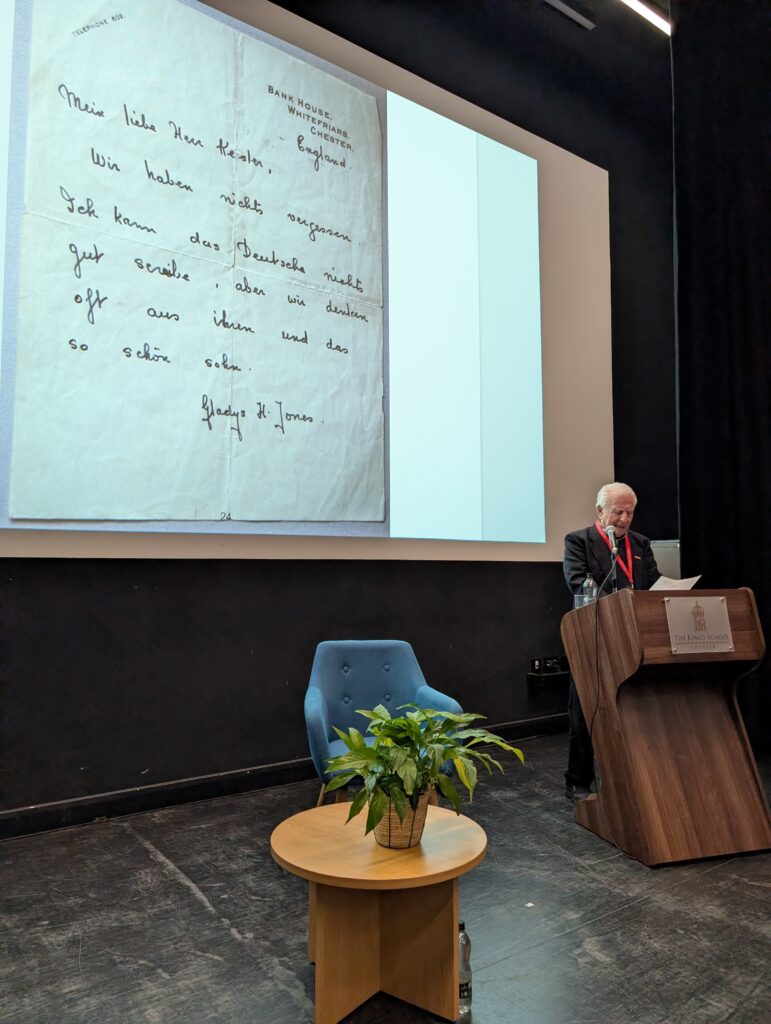 TELEPHONE 602.
BANK HOUSE,
WHITEFRIARS,
CHESTER.
England.
Mein liebe Herr Kester,
Wir haben nichts vergessen.
Ich kann das Deutsche nichts
gut scribe, aber wir denken
oft aus ihnen und das
so schön sohn.
Gladys H. Jones.
24
THE KING'S SCHOOL
CHESTER